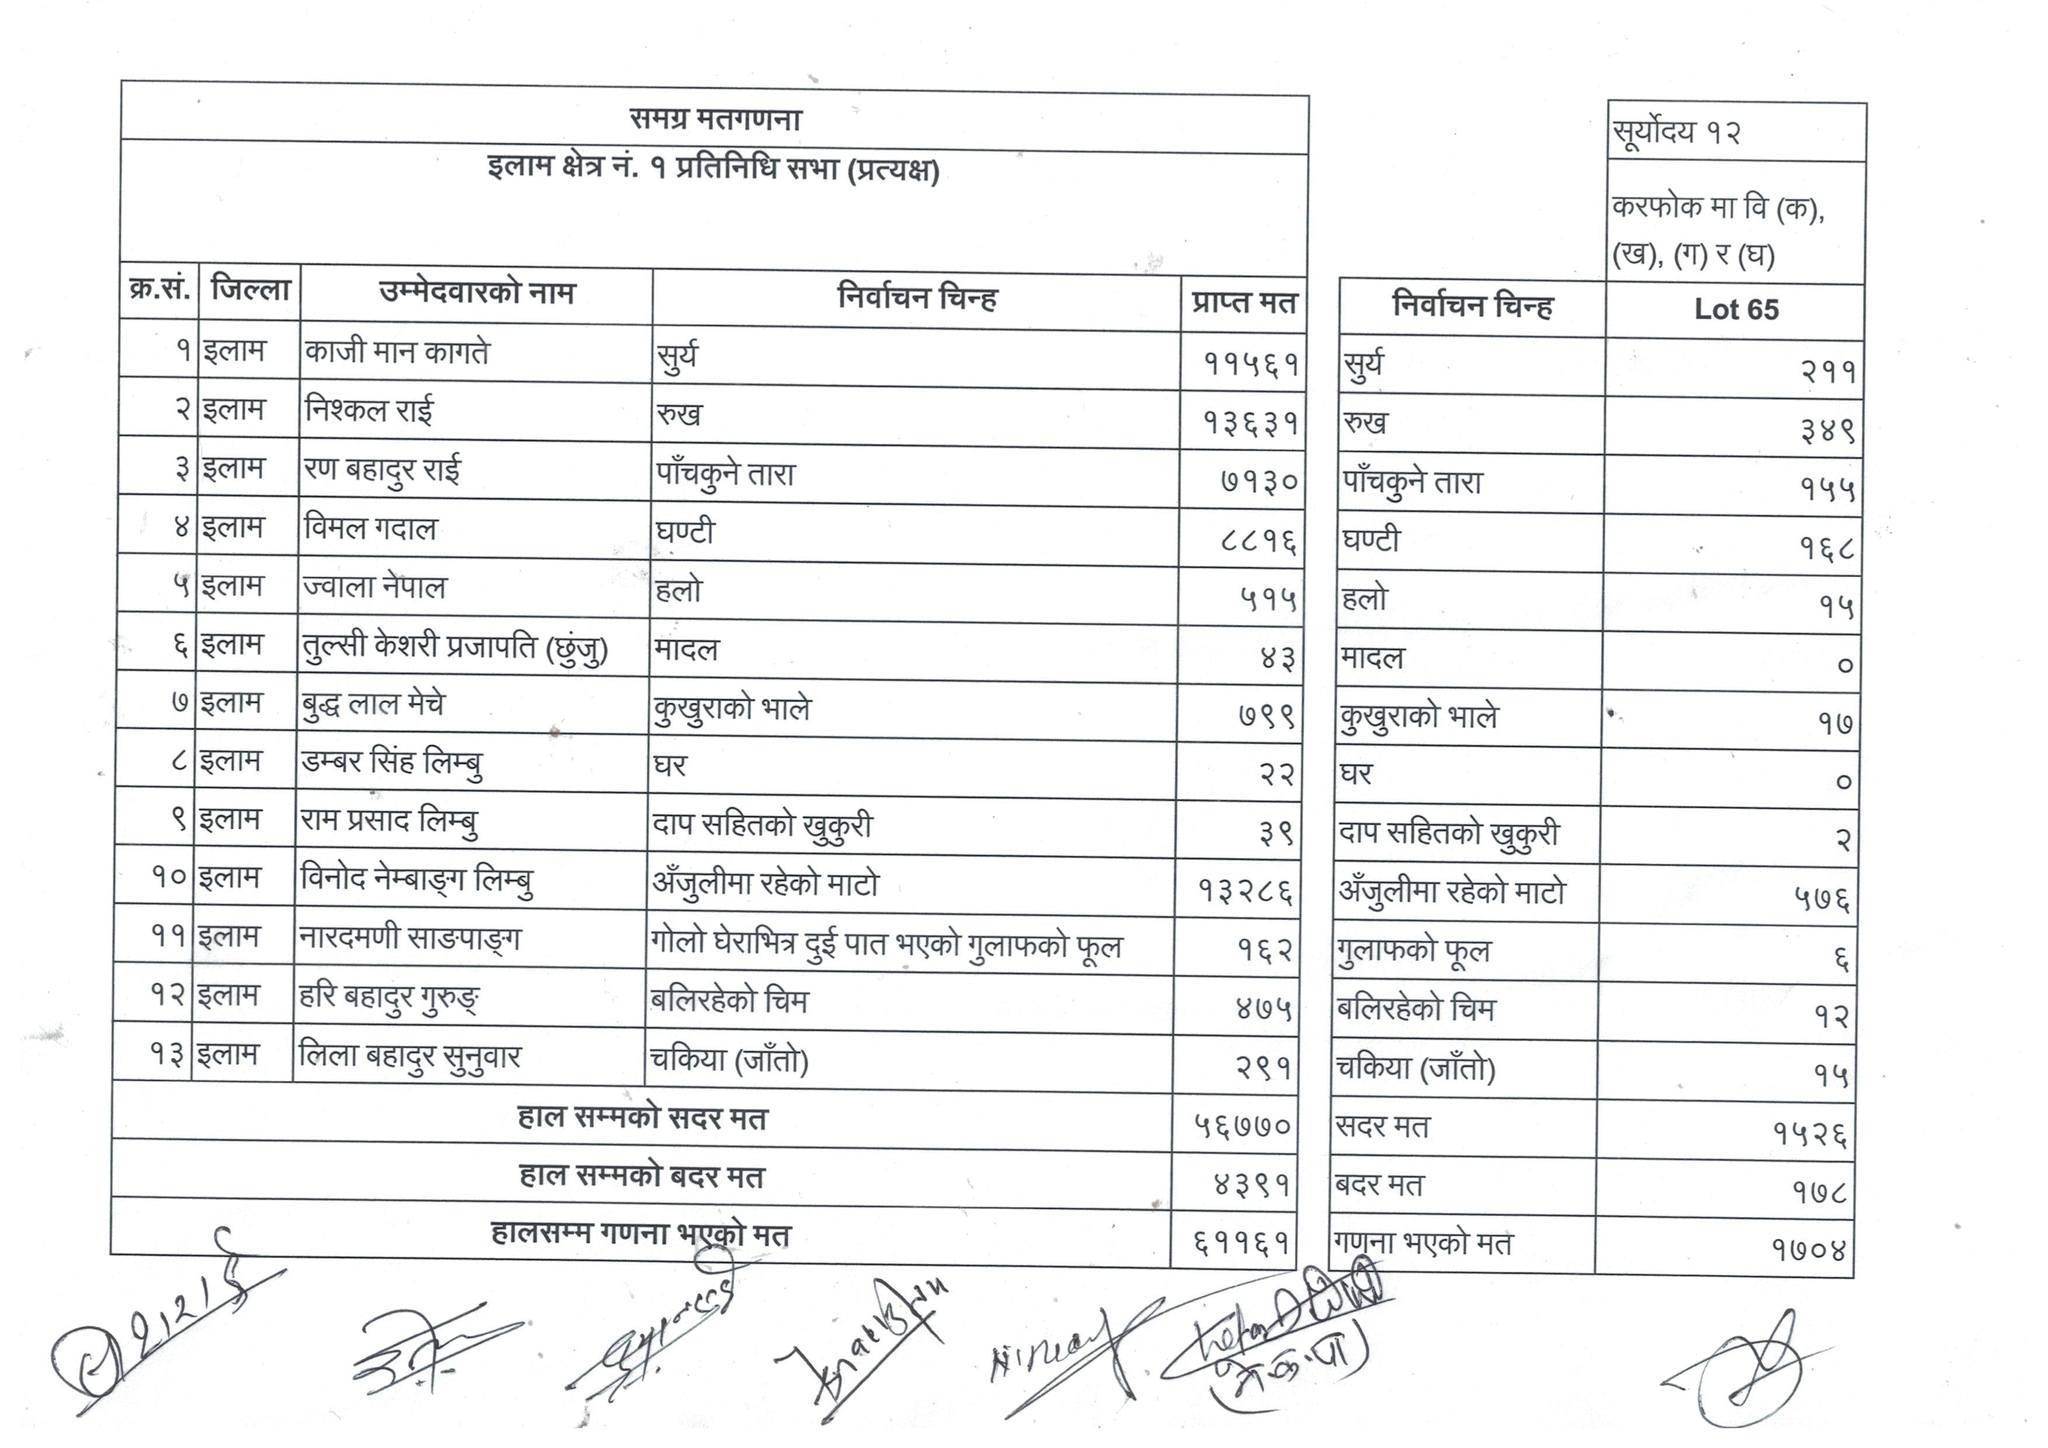 समग्र मतगणना
इलाम क्षेत्र नं. १ प्रतिनिधि सभा (प्रत्यक्ष)
क्र.सं. जिल्ला उम्मेदवारको नाम निर्वाचन चिन्ह प्राप्त मत
१ इलाम काजी मान कागते सुर्य ११५६१
२ इलाम निश्कल राई रुख १३६३१
३ इलाम रण बहादुर राई पाँचकुने तारा ७१३०
४ इलाम विमल गदाल घण्टी ८८१६
५ इलाम ज्वाला नेपाल हलो ५१५
६ इलाम तुल्सी केशरी प्रजापति (छुंजु) मादल ४३
७ इलाम बुद्ध लाल मेचे कुखुराको भाले ७९९
८ इलाम डम्बर सिंह लिम्बु घर २२
९ इलाम राम प्रसाद लिम्बु दाप सहितको खुकुरी ३९
१० इलाम विनोद नेम्बाङ्ग लिम्बु अँजुलीमा रहेको माटो १३२८६
११ इलाम नारदमणी साङपाङ्ग गोलो घेराभित्र दुई पात भएको गुलाफको फूल १६२
१२ इलाम हरि बहादुर गुरुङ् बलिरहेको चिम ४७५
१३ इलाम लिला बहादुर सुनुवार चकिया (जाँतो) २९१
हाल सम्मको सदर मत ५६७७०
हाल सम्मको बदर मत ४३९१
हालसम्म गणना भएको मत ६११६१
सूर्योदय १२
करफोक मा वि (क),
(ख), (ग) र (घ)
निर्वाचन चिन्ह Lot 65
सुर्य २११
रुख ३४९
पाँचकुने तारा १५५
घण्टी १६८
हलो १५
मादल ०
कुखुराको भाले १७
घर ०
दाप सहितको खुकुरी २
अँजुलीमा रहेको माटो ५७६
गुलाफको फूल ६
बलिरहेको चिम १२
चकिया (जाँतो) १५
सदर मत १५२६
बदर मत १७८
गणना भएको मत १७०४